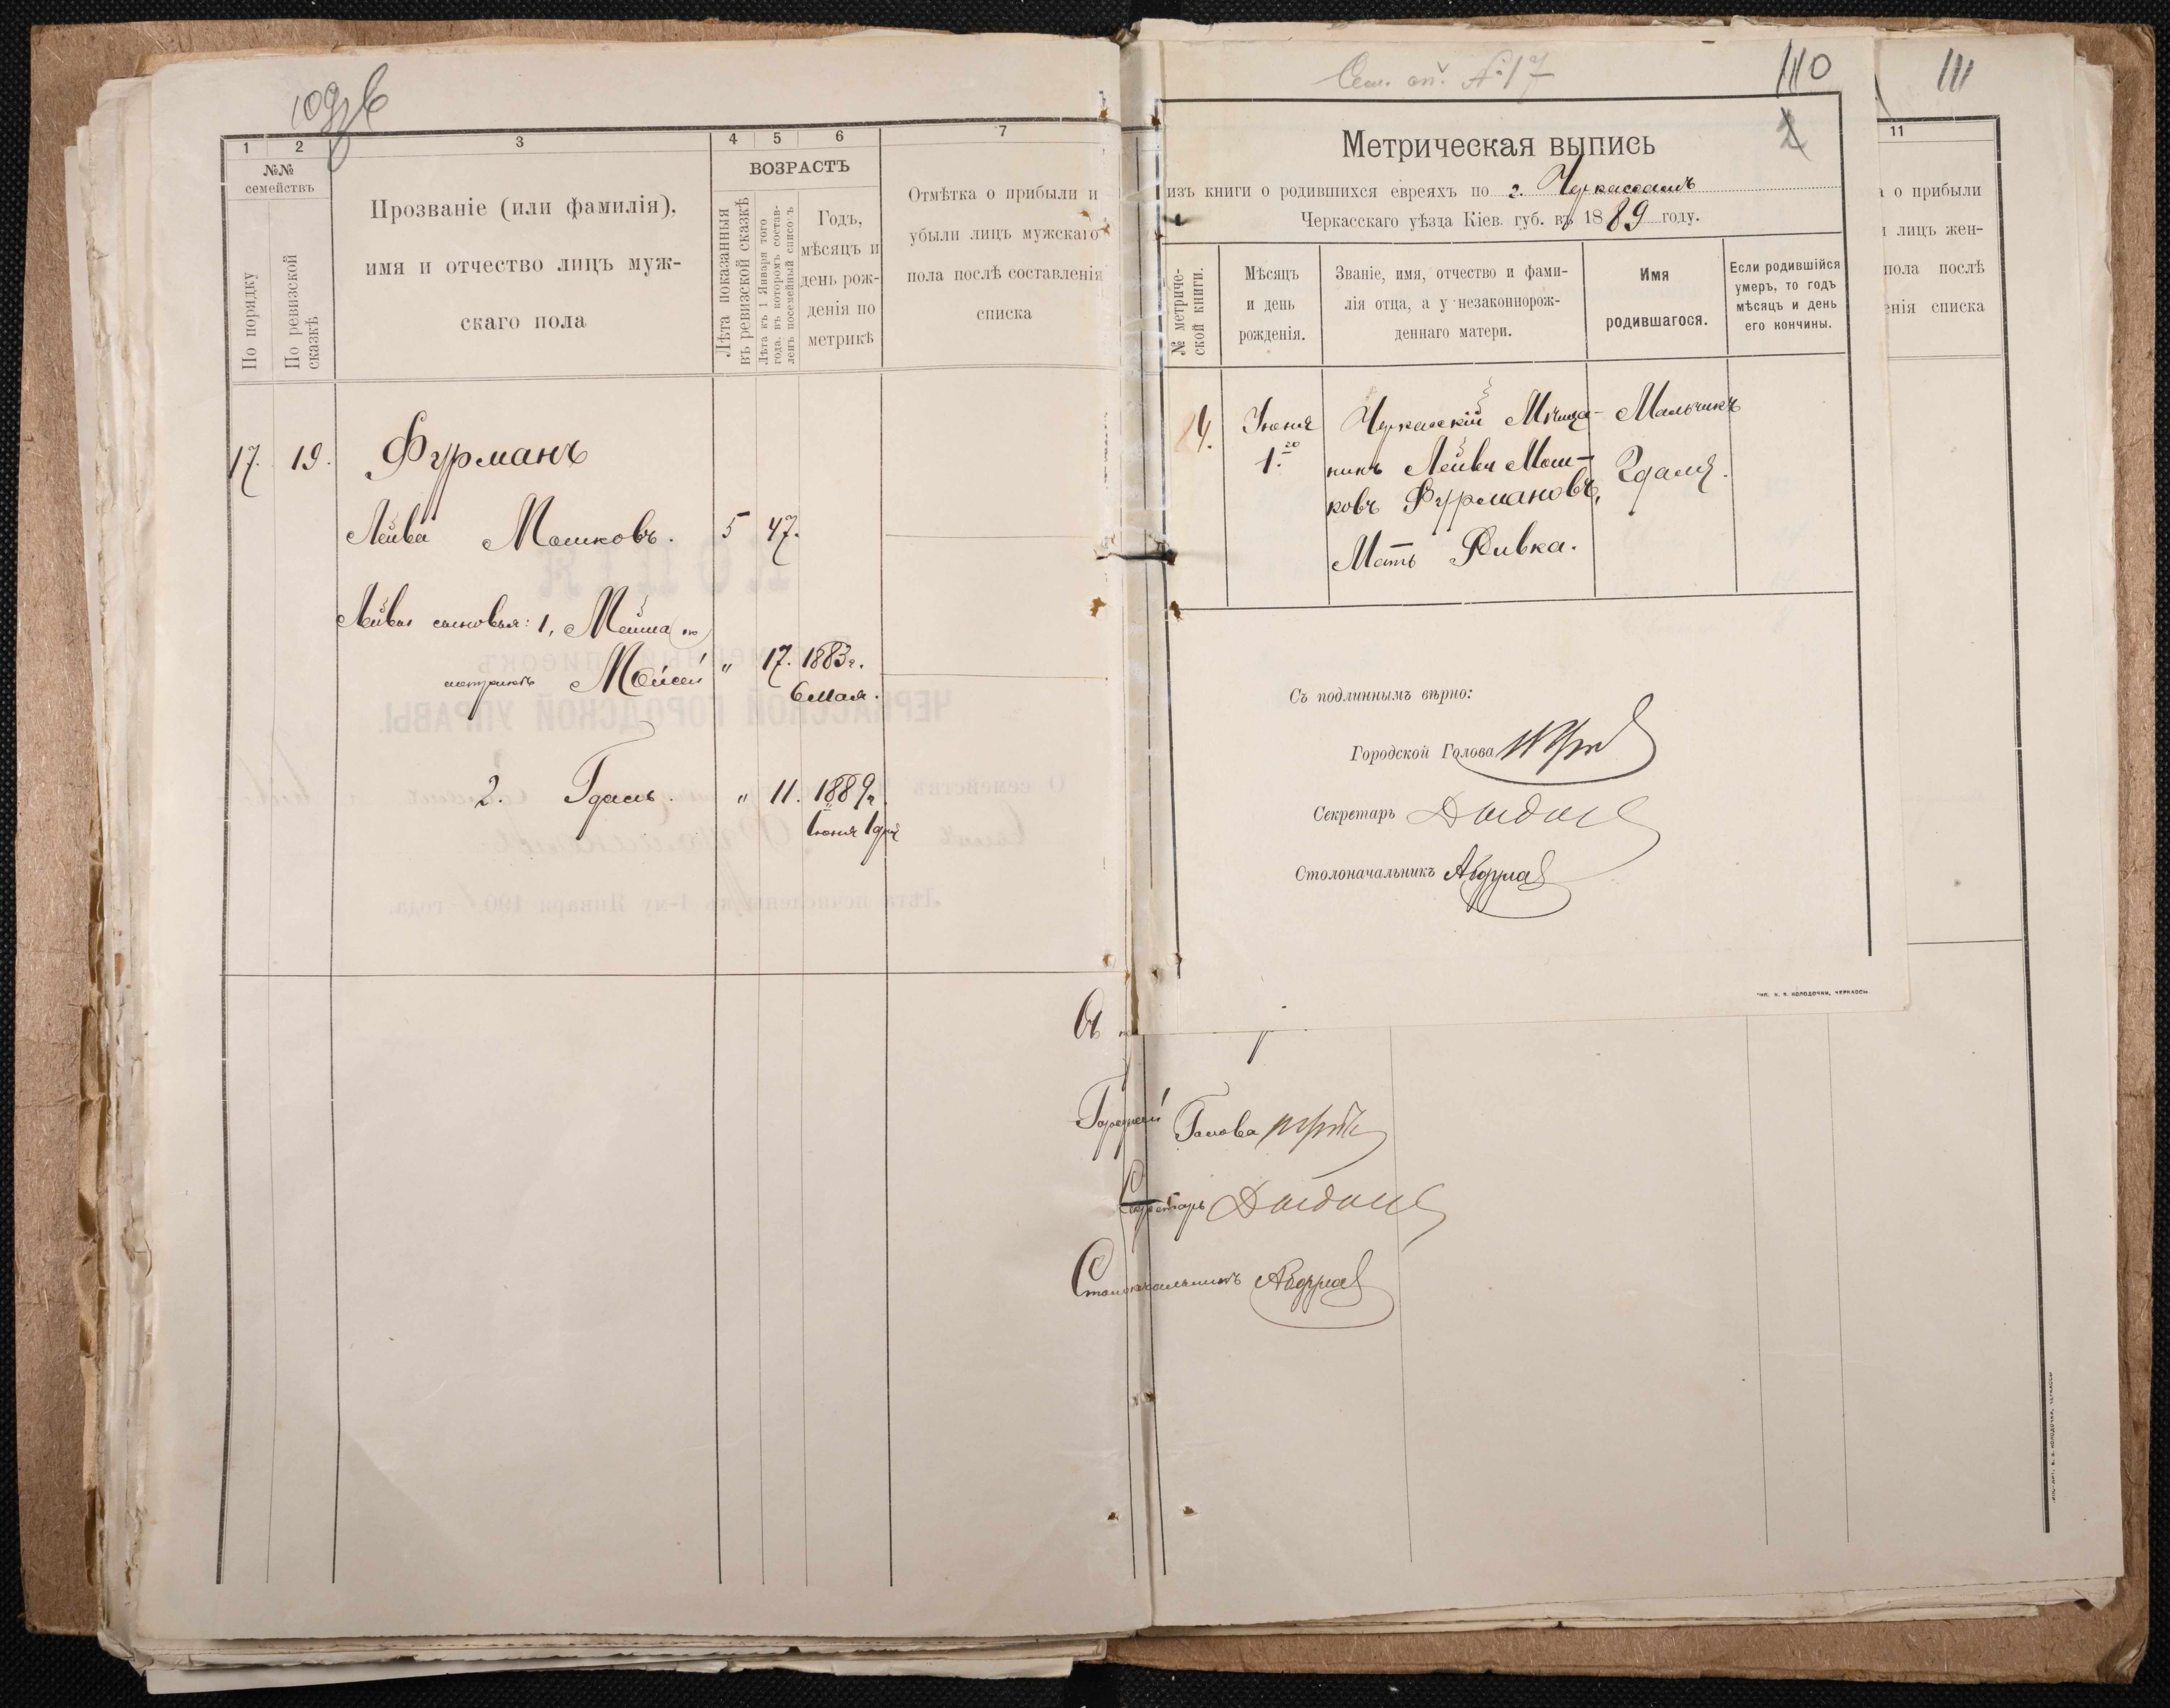 109зв
1
2
3
4
5
6
7
№№
семействъ
По порядку
По ревизской
сказкѣ
Прозваніе (или фамилія),
имя и отчество лицъ муж-
скаго пола
ВОЗРАСТЪ
Лѣта показанныя
въ ревизской сказкѣ
Лѣта къ 1 Января того
года, въ которомъ состав-
ленъ посемейный списокъ
Годъ,
мѣсяцъ и
день рож-
денія по
метрикѣ
Отмѣтка о прибыли и
убыли лицъ мужскаго
пола послѣ составленія
списка
17. 19. Фурманъ
Лейва Мошковъ. 5 47.
Лейвы сыновья: 1, Мойша (по
метрикѣ Мойсей " 17. 1883г.
6 мая.
2. Гдаль. " 11. 1889г.
Іюня 1 дня
Съ
Городской Голова
Секретарь
Столоначальникъ
Сем. сп. № 17
110
2
Метрическая выпись
изъ книги о родившихся евреяхъ по г. Черкассамъ
Черкасскаго уѣзда Кіев. губ. въ 1889 году.
№ метриче-
ской книги.
Мѣсяцъ
и день
рожденія.
Званіе, имя, отчество и фами-
лія отца, а у незаконнорож-
деннаго матери.
Имя
родившагося.
Если родившійся
умеръ, то годъ
мѣсяцъ и день
его кончины.
84. Іюня Черкасскій Мѣща- Мальчикъ
1.го нинъ Лейва Мош- Гдаля.
ковъ Фурмановъ,
Мать Ривка.
Съ подлиннымъ вѣрно:
Городской Голова
Секретарь
Столоначальникъ
ТИП. В. Я. КОЛОДОЧКИ, ЧЕРКАССЫ.
111
11
а о прибыли
и лицъ жен-
пола послѣ
енія списка